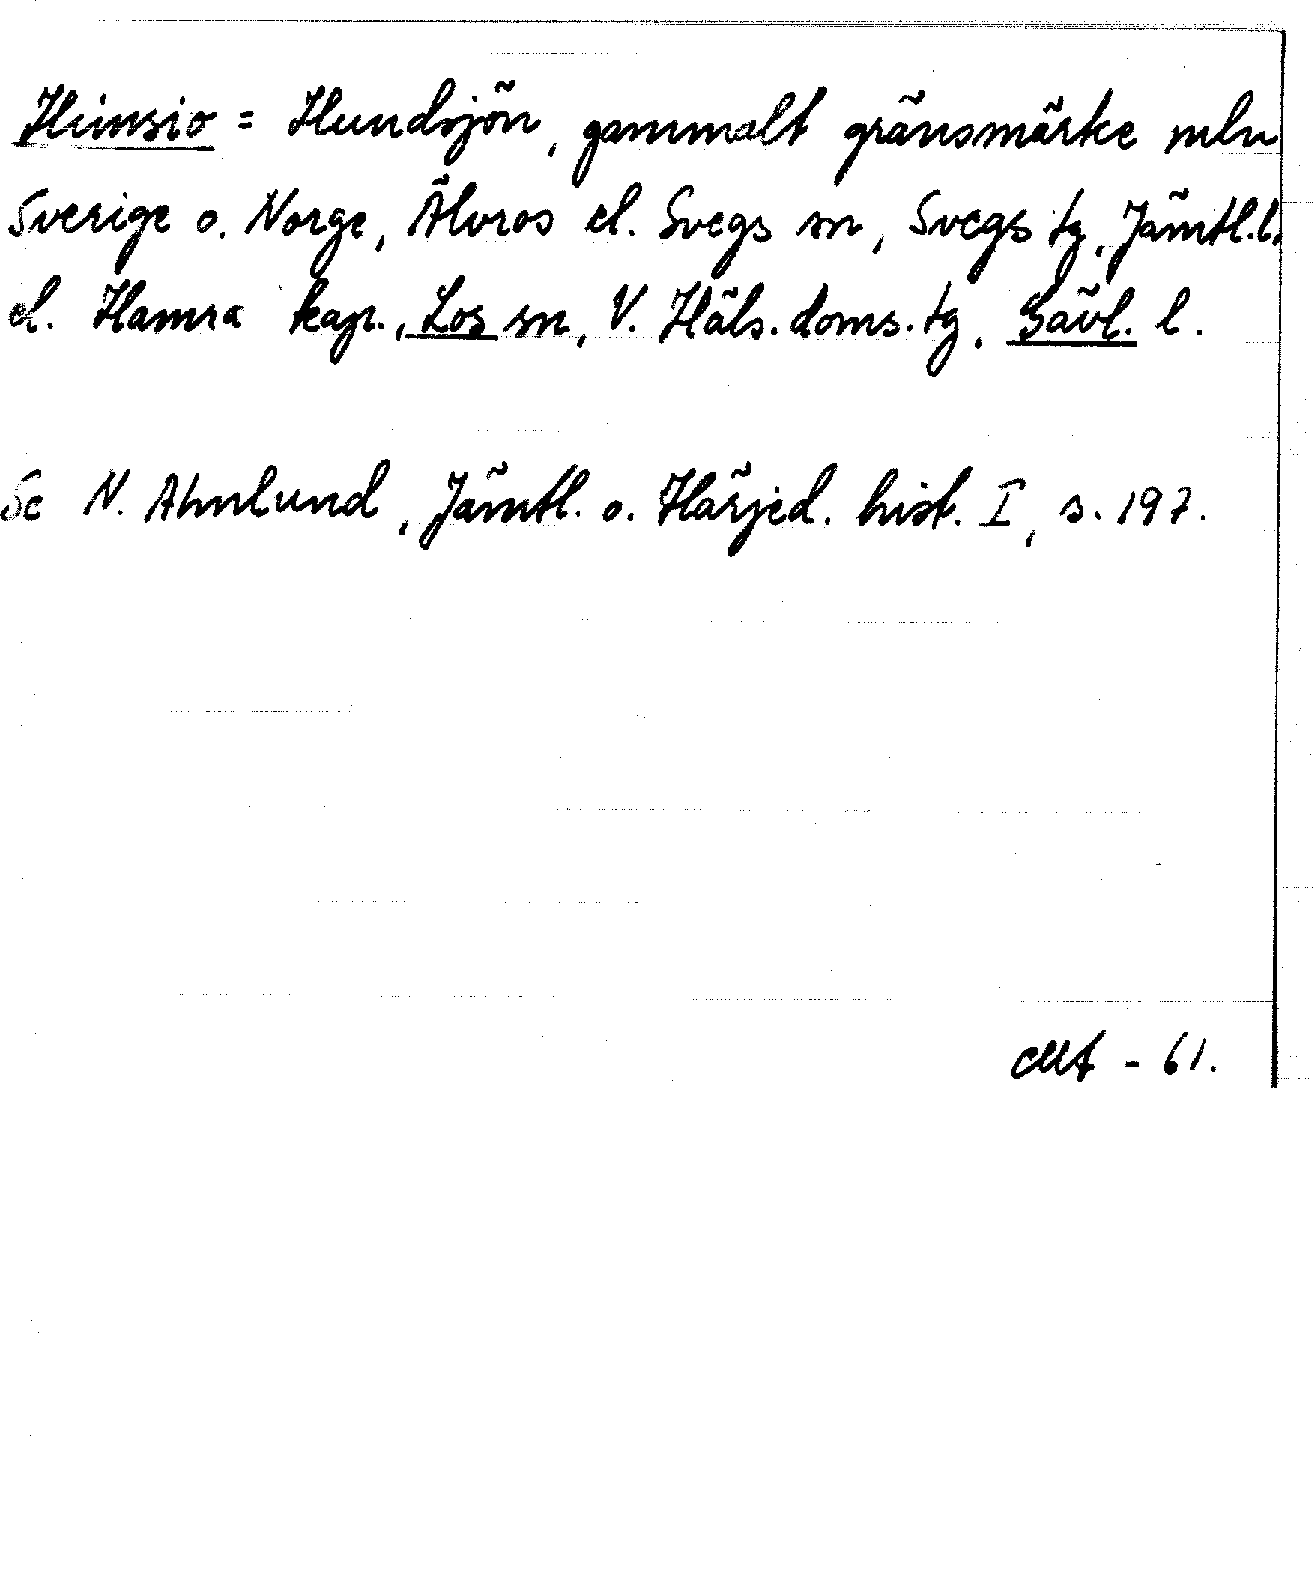 Hunsio = Hundsjön, gammalt gränsmärke mln
Sverige o. Norge, Älvros el. Svegs sn, Svegs tg, Jämtl. l.
el. Hamra kap., Los sn, V. Häls. doms. tg, Gävl. l.
Se N. Ahnlund, Jämtl. o. Härjed. hist. I, s. 197.
- 61.